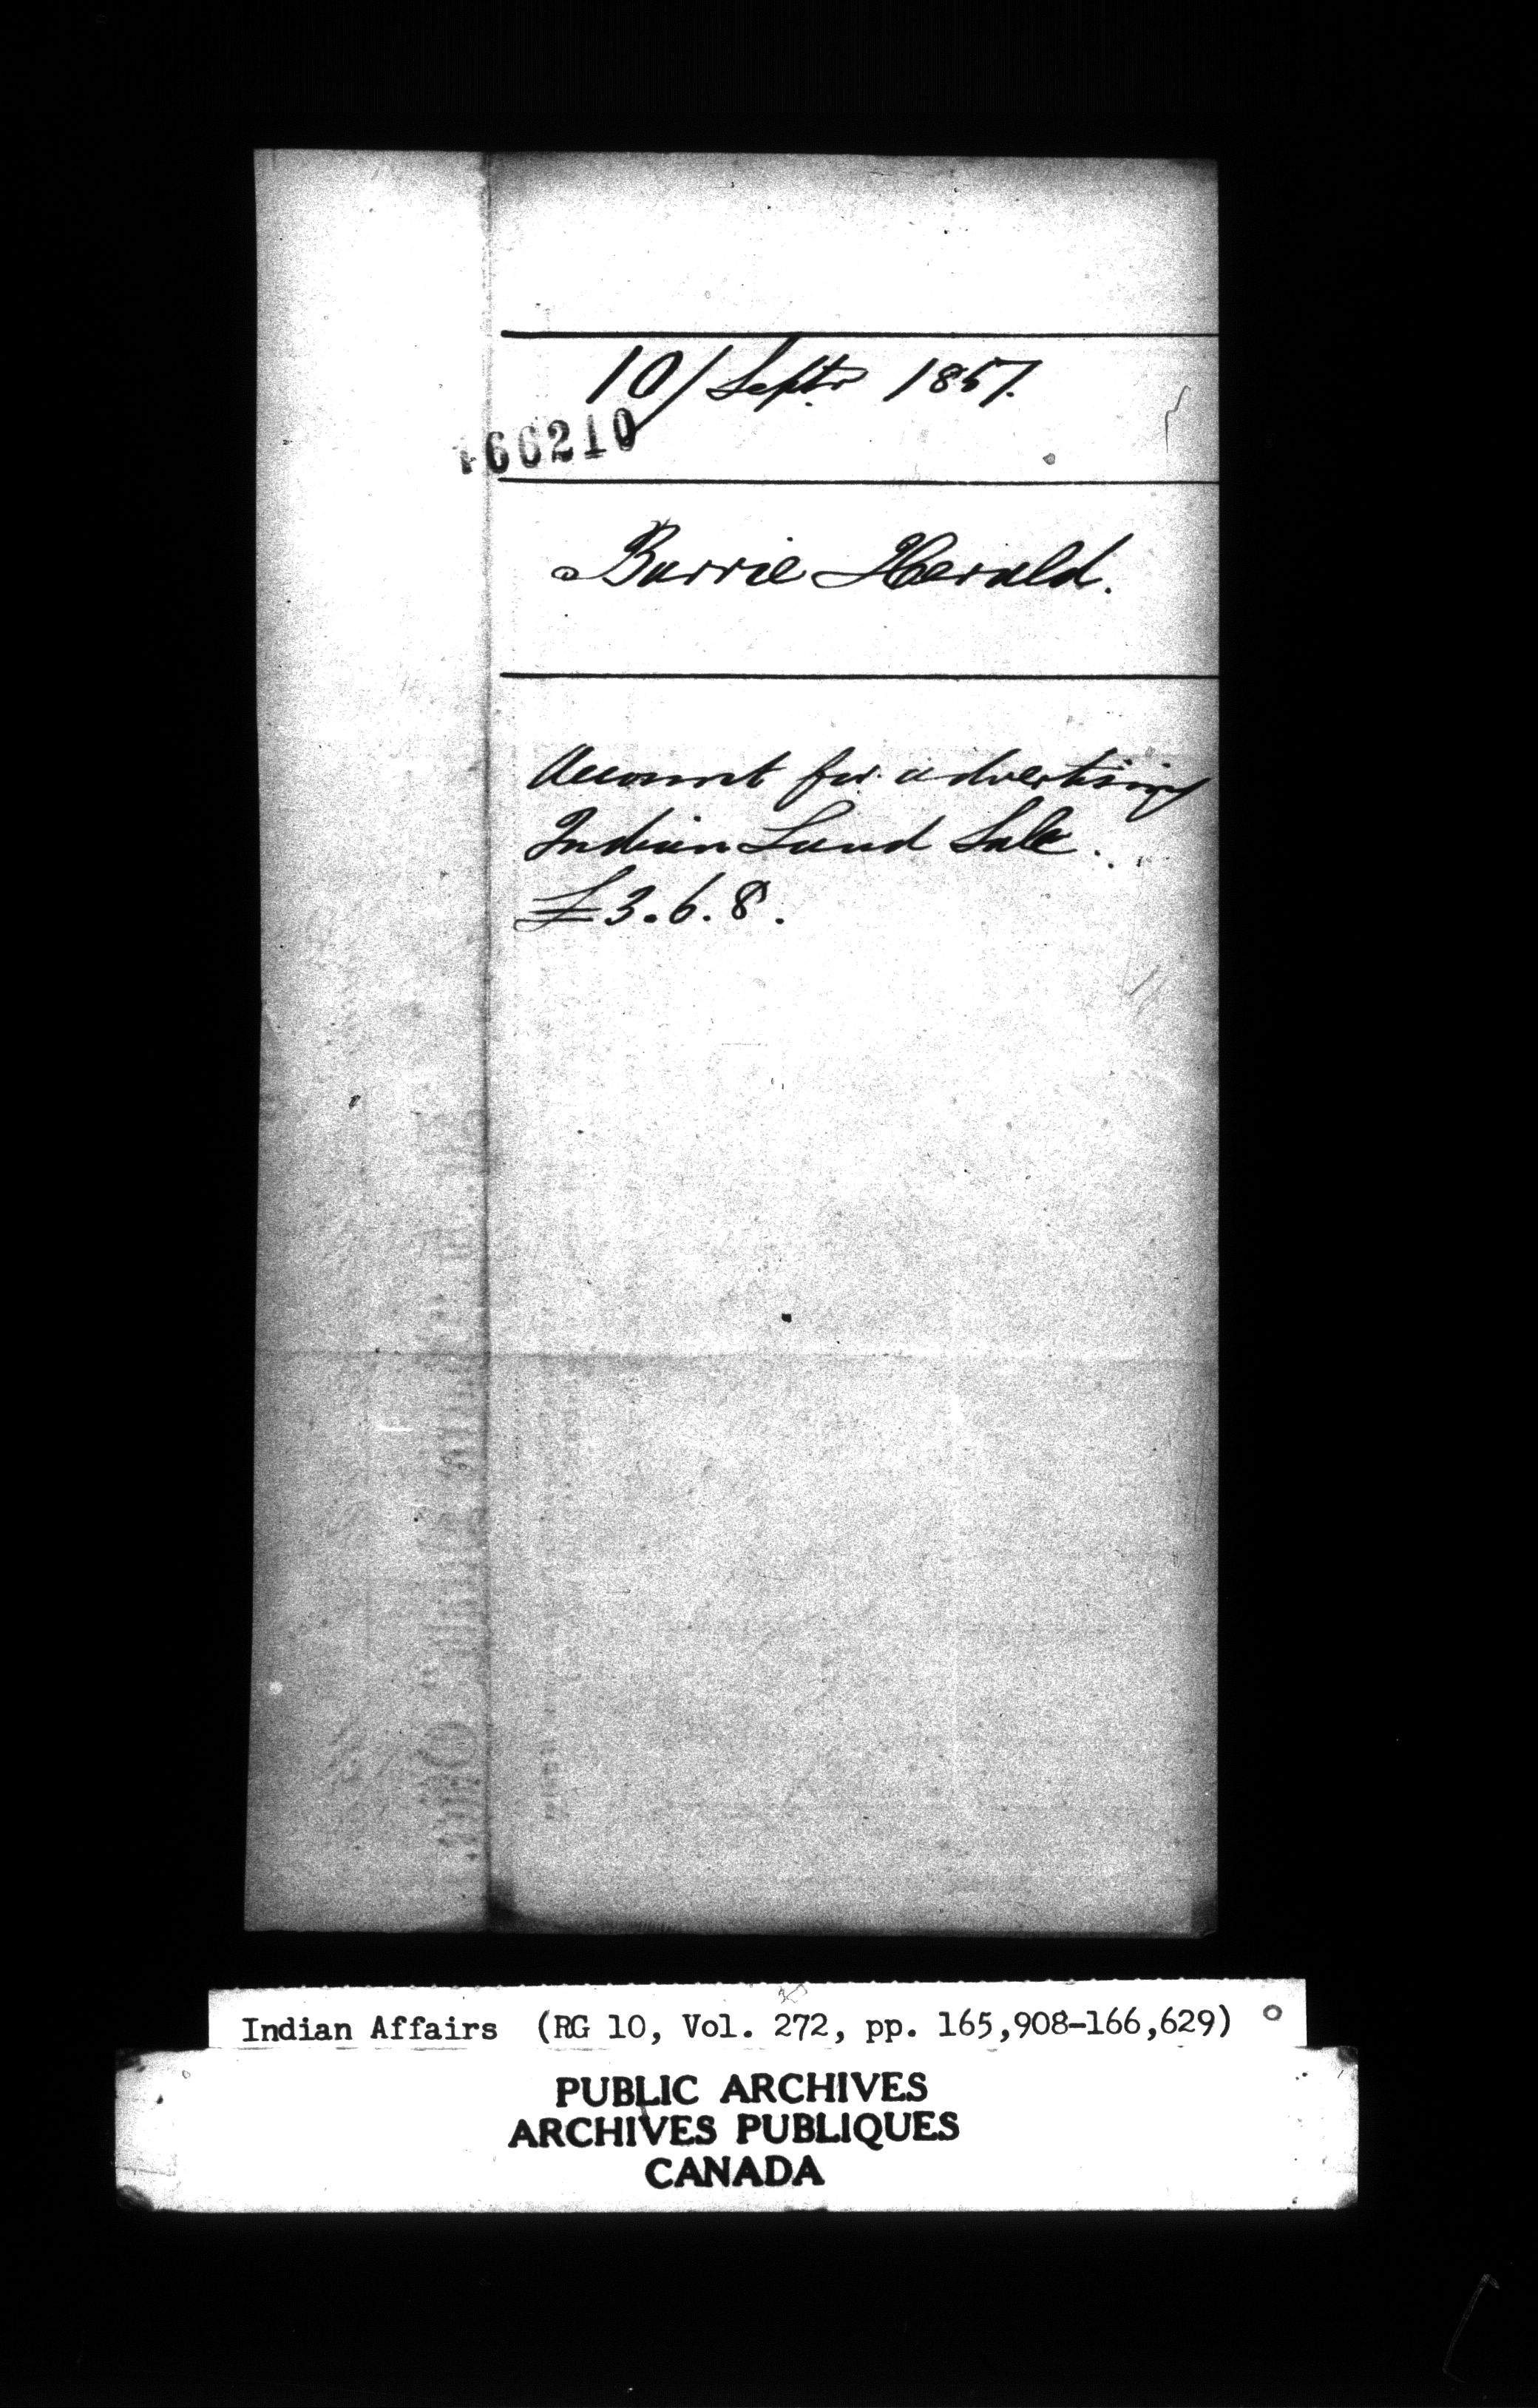 10/ Septr 1857.
166210
Barrie Herald.
Account for advertising
Indian Land Sale.
£3.6.8.
Indian Affairs (RG 10, Vol. 272, pp. 165,908-166,629)
PUBLIC ARCHIVES
ARCHIVES PUBLIQUES
CANADA